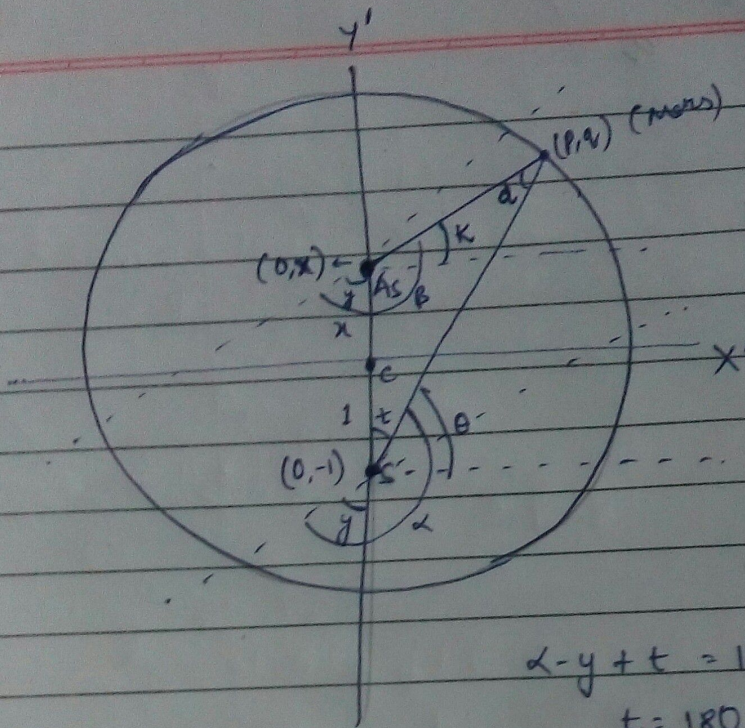 y'
(p,q) (mars)
d
K
(0,x) ←
As
y
B
x
X
C
1
t
θ
(0,-1)
S
y
α
α - y + t = 1
t = 180